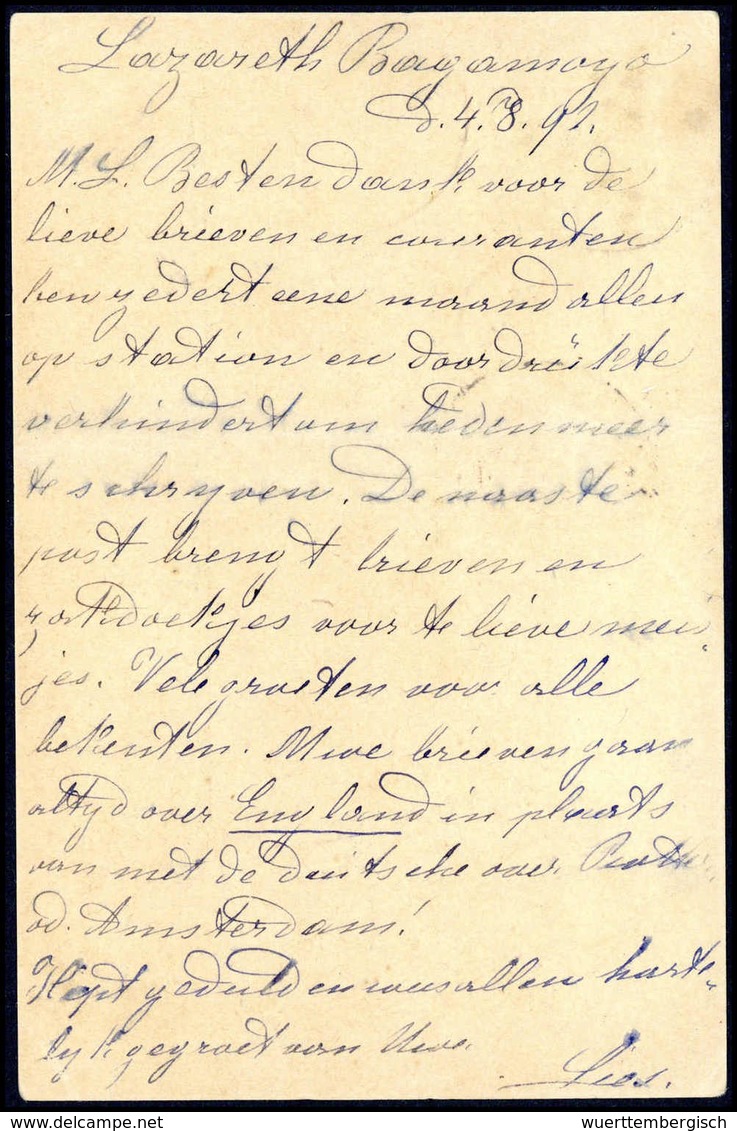 Lazareth Bagamoyo
d. 4. 8. 91.
M. L. Besten dank voor de
lieve brieven en couranten
ben zedert eene maand allen
op station en door drükte
verhindert om heden meer
te schryven. De naaste
post brengt brieven en
zakdoekjes voor te lieve meis„
jes. Vele groeten voor alle
bekenten. Uwe brieven gaan
altyd over England in plaats
van met de deutsche over
od. Amsterdam!
Hept geduld en wees allen harte„
lyk gegroet van Uwe
Lies.
delcampe.net
wuerttembergisch